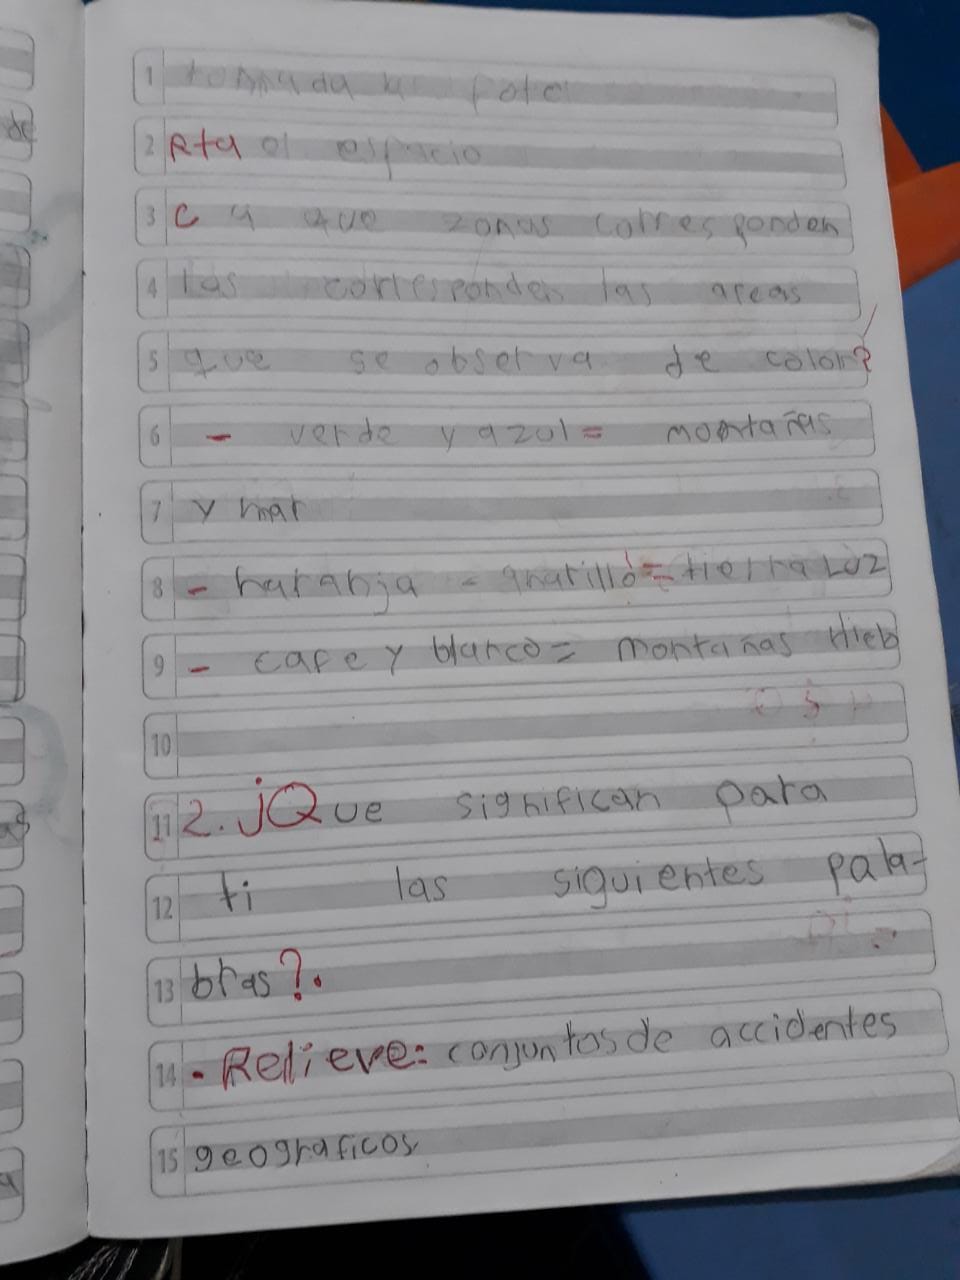 1 tomada la foto
2 Rta el espacio
3 C a que zonas corresponden
4 las corresponden las areas
5 que se observa de color?
6 - verde y azul = montañas
7 y mar
8 - naranja - amarillo = tierra Luz
9 - cafe y blanco = montañas
10
11 2. ¡Que significan para
12 ti las siguientes pala-
13 bras?.
14 - Relieve: conjuntos de accidentes
15 geograficos